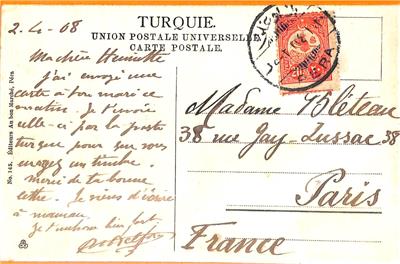 TURQUIE.
UNION POSTALE UNIVERSELLE
CARTE POSTALE.
2-4-08
Ma chère Henriette
j'ai envoyé une
carte à ton mari ce
matin. Je t'envoie
celle-ci par la poste
turque pour que vous
ayez un timbre.
merci de ta bonne
lettre. Je viens d'écrire
à maman
Je t'embrasse bien fort
Madame Bléteau
38 rue Gay-Lussac 38
Paris
France
No. 145. Éditeurs Au bon Marché, Péra.
PERA